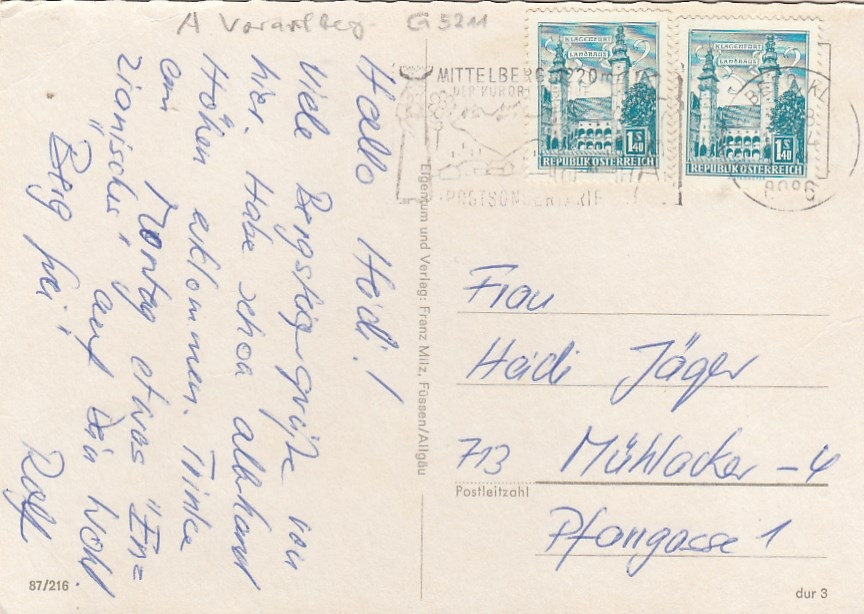 A Vorarlberg G 3211
Hallo Heidi!
Viele Bergsteigergrüße von
hier. Habe schon allerhand
Höhen erklommen. Trinke
am Montag etwas "Enz=
zianisches" auf Dein Wohl.
"Berg frei!
Rolf
87/216
Eigentum und Verlag: Franz Milz, Füssen/Allgäu
KLAGENFURT
LANDHAUS
1 S 40
REPUBLIK ÖSTERREICH
KLAGENFURT
LANDHAUS
1 S 40
REPUBLIK ÖSTERREICH
MITTELBERG 1220 m
DER KURORT
POSTSONDERTARIF
Frau
Heidi Jäger
713 Mühlacker - 4
Postleitzahl
Pfangasse 1
dur 3